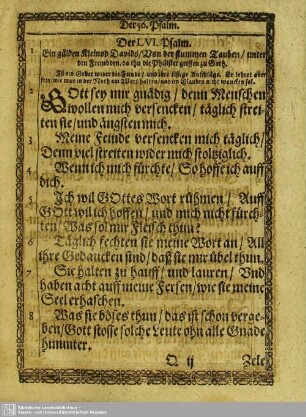 Der 56. Psalm.
Der LVI. Psalm.
1 Ein gülden Kleinod Davids/ Von der stummen Tauben/ unter
den Frembden/ da ihn die Philister griffen zu Gath.
Ist ein Gebet wider die Feinde/ und ihre listige Anschläge. Er lehret aber
2 GOtt sey mir gnädig/ denn Menschen
wollen mich versencken/ täglich strei-
ten sie/ und ängsten mich.
3 Meine Feinde versencken mich täglich/
Denn viel streiten wider mich stoltziglich.
4 Wenn ich mich fürchte/ So hoffe ich auff
dich.
5 Ich wil GOttes Wort rühmen/ Auff
GOtt wil ich hoffen/ und mich nicht fürch-
ten/ Was solt mir Fleisch thun?
6 Täglich fechten sie meine Wort an/ All
ihre Gedancken sind/ daß sie mir übel thun.
7 Sie halten zu hauff/ und lauren/ Und
haben acht auff meine Fersen/ wie sie meine
Seel erhaschen.
8 Was sie böses thun/ das ist schon verge-
ben/ Gott stosse solche Leute ohn alle Gnade
hinunter.
Q ij Zele